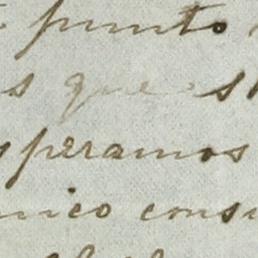 punto
s que s
speramos
nico cons